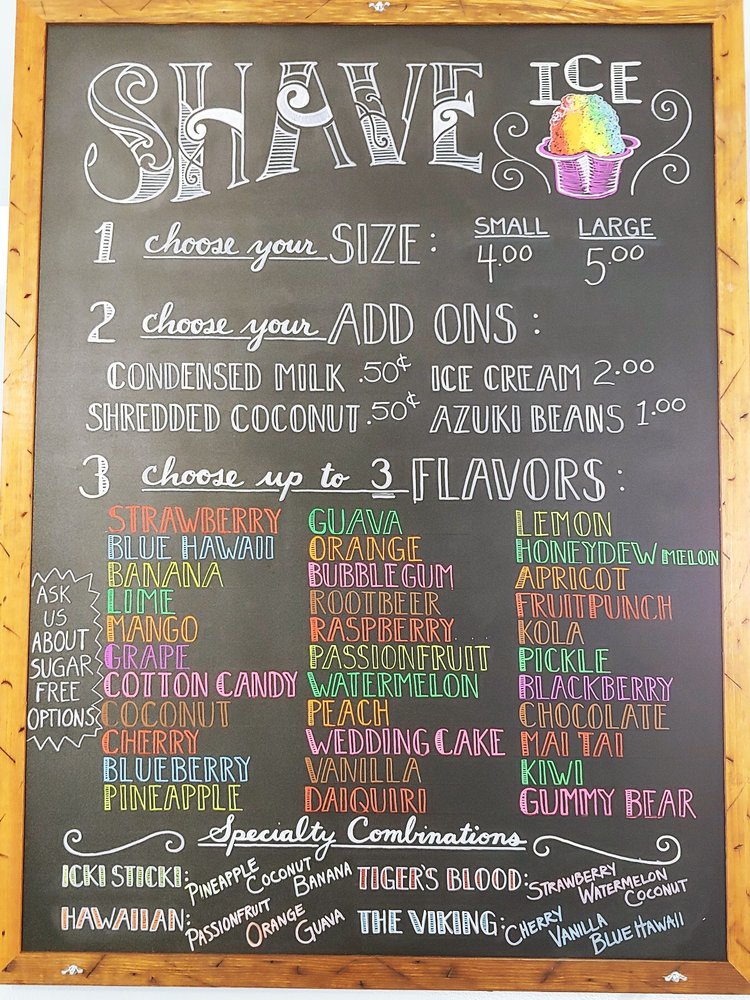 SHAVE ICE
1 choose your SIZE: SMALL LARGE
4.00 5.00
2 choose your ADD ONS:
CONDENSED MILK .50¢ ICE CREAM 2.00
SHREDDED COCONUT .50¢ AZUKI BEANS 1.00
3 choose up to 3 FLAVORS:
STRAWBERRY GUAVA LEMON
BLUE HAWAII ORANGE HONEYDEW MELON
BANANA BUBBLEGUM APRICOT
LIME ROOTBEER FRUITPUNCH
MANGO RASPBERRY KOLA
GRAPE PASSIONFRUIT PICKLE
COTTON CANDY WATERMELON BLACKBERRY
COCONUT PEACH CHOCOLATE
CHERRY WEDDING CAKE MAI TAI
BLUEBERRY VANILLA KIWI
PINEAPPLE DAIQUIRI GUMMY BEAR
ASK
US
ABOUT
SUGAR
FREE
OPTIONS
Specialty Combinations
ICKI STICKI: PINEAPPLE COCONUT BANANA TIGER'S BLOOD: STRAWBERRY WATERMELON COCONUT
HAWAIIAN: PASSIONFRUIT ORANGE GUAVA THE VIKING: CHERRY VANILLA BLUE HAWAII